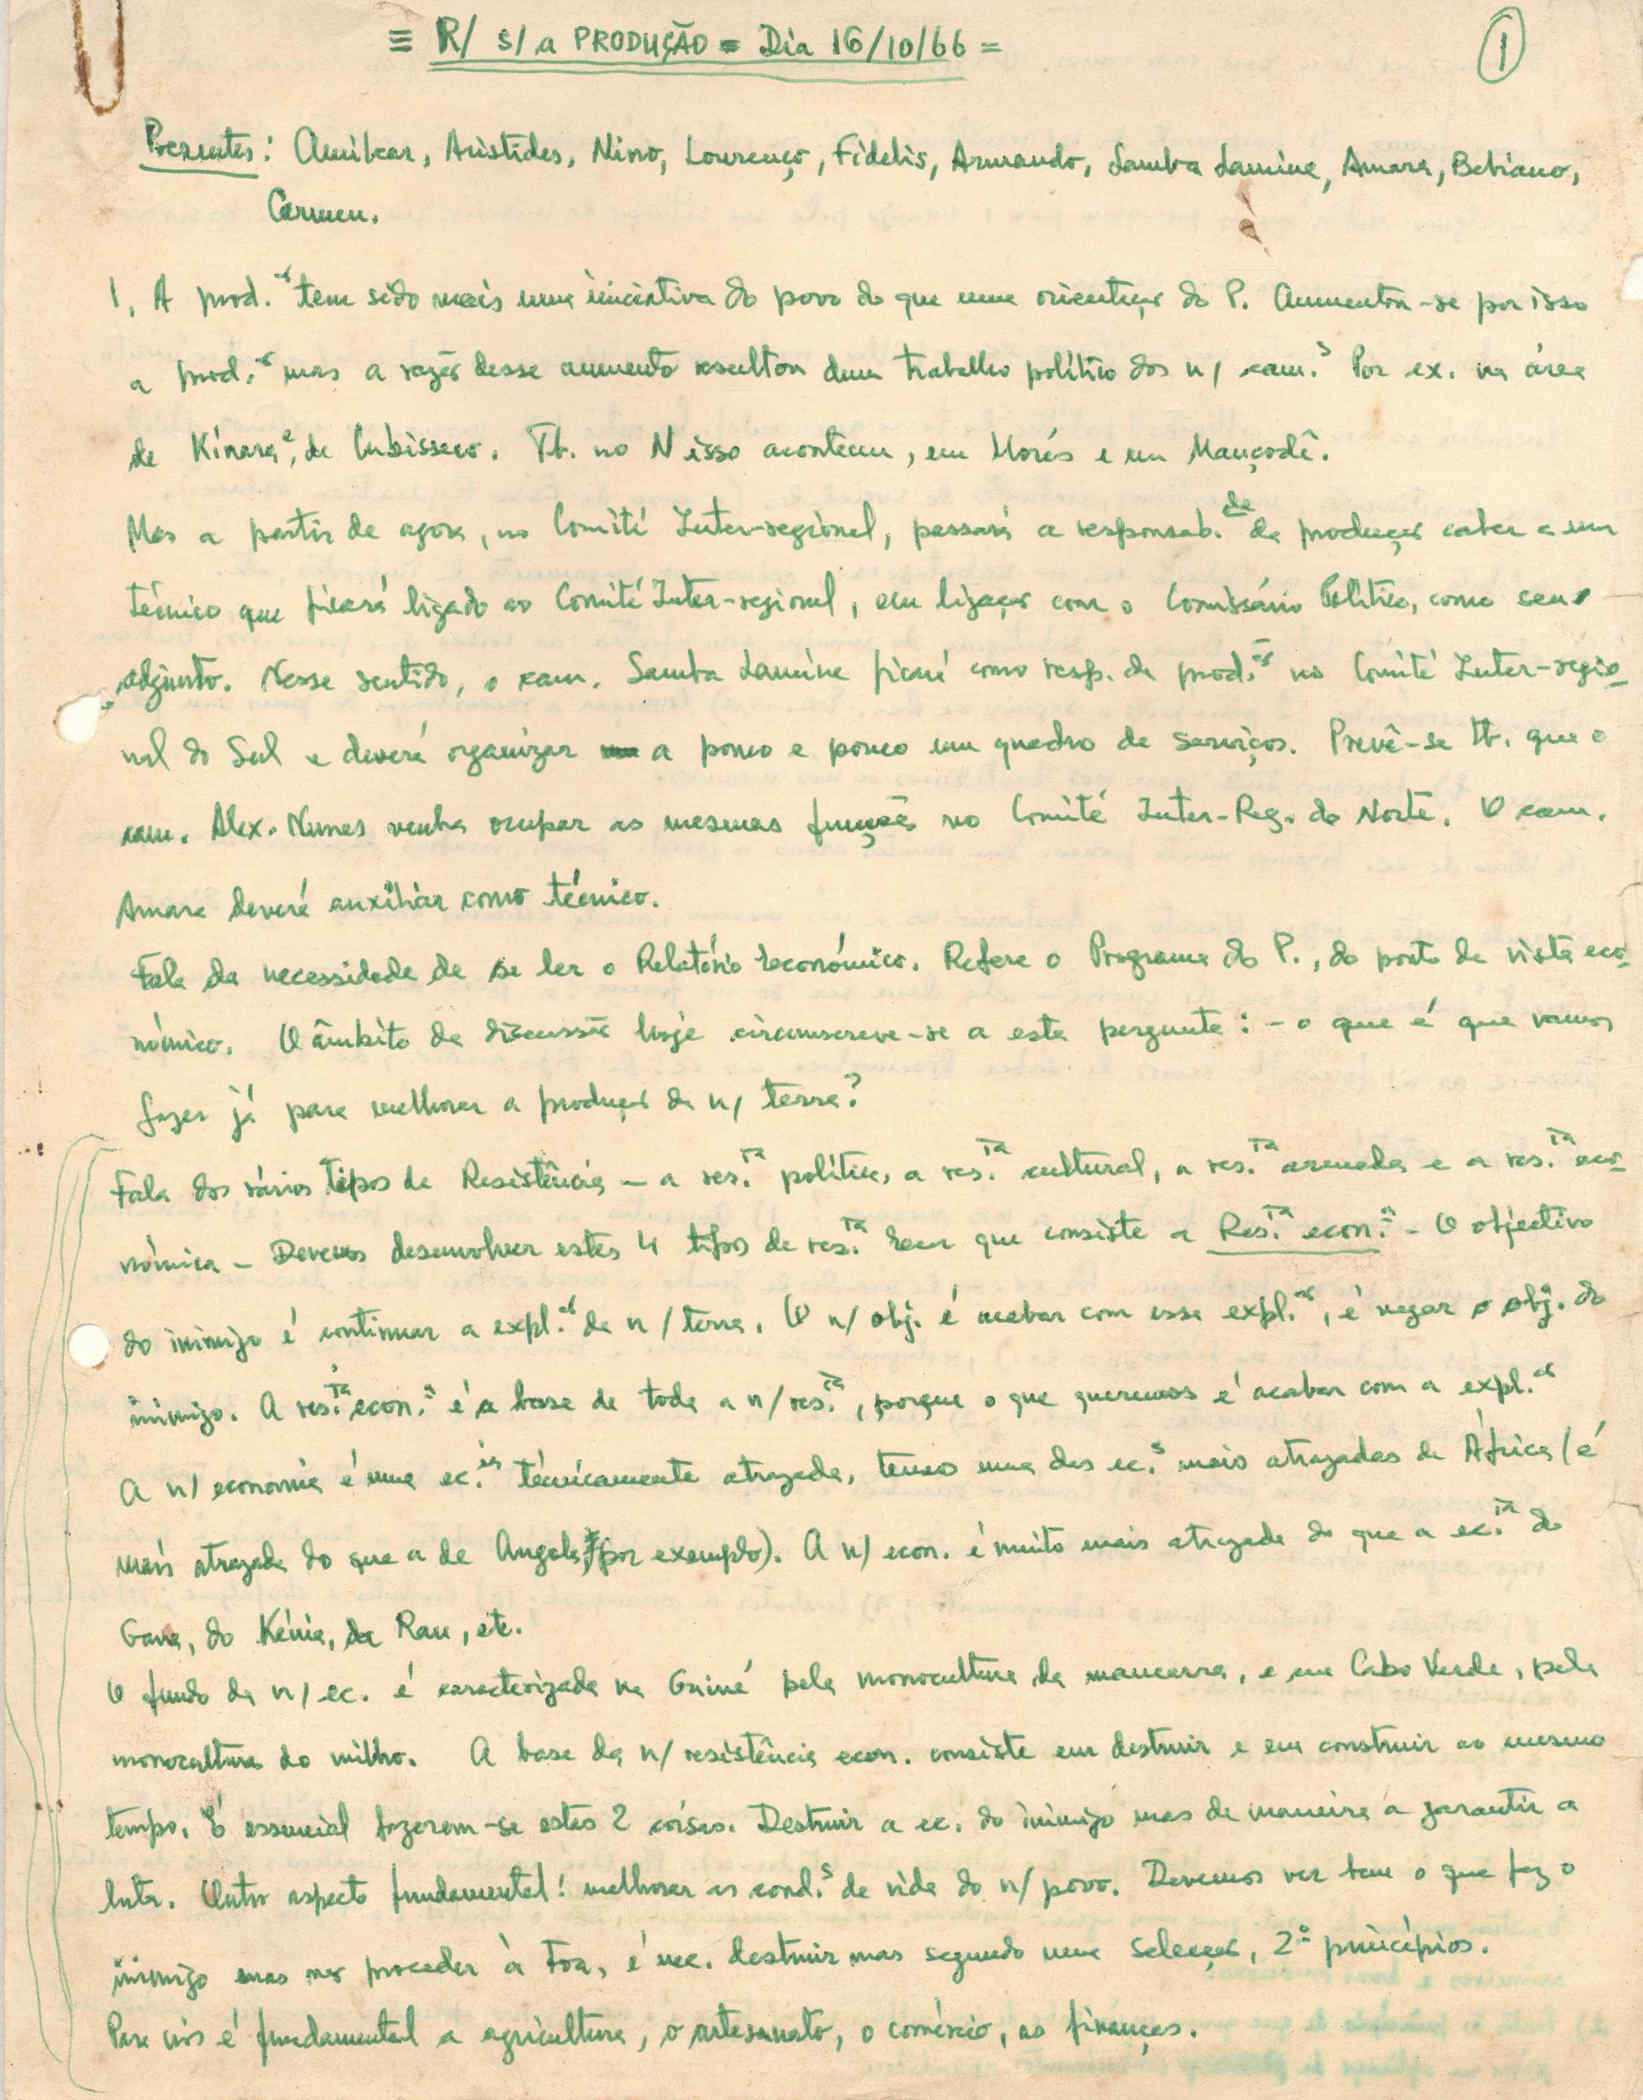 ≡ R/ s/ a PRODUÇÃO = Dia 16/10/66 =
1
Presentes: Amílcar, Aristides, Nino, Lourenço, Fidelis, Armando, Samba Lamine, Amara, Bebiano,
Carmen.
1. A prod.ão tem sido mais uma iniciativa do povo do que uma orientação do P. Aumentou-se por isso
a prod.ão mas a razão desse aumento resultou dum trabalho político dos n/ cam.s Por ex. na área
de Kínara e, de Cubisseco. Tb. no N isso aconteceu, em Morés e em Mançodê.
Mas a partir de agora, no Comité Inter-regional, passará a responsab.de da produção caber a um
técnico que ficará ligado ao Comité Inter-regional, em ligação com o Comissário Político, como seu
adjunto. Nesse sentido, o cam. Samba Lamine ficará como resp. da prod.ão no Comité Inter-regio-
nal do Sul e deverá organizar a pouco e pouco um quadro de serviços. Prevê-se tb. que o
cam. Alex. Nunes venha ocupar as mesmas funções no Comité Inter-Reg. do Norte. O cam.
Amara deverá auxiliar como técnico.
Fala da necessidade de se ler o Relatório Económico. Refere o Programa do P., do ponto de vista eco-
nómico. O âmbito da discussão hoje circunscreve-se a esta pergunta: - o que é que vamos
fazer já para melhorar a produção da n/ terra?
Fala dos vários tipos de Resistência - a res.ia política, a res.ia cultural, a res.ia armada e a res.ia eco-
nómica - Devemos desenvolver estes 4 tipos de res.ia Em que consiste a Res.ia econ.a - O objectivo
do inimigo é continuar a expl.ão da n/ terra. O n/ obj. é acabar com essa expl.ão, é negar o obj. do
inimigo. A res.ia econ.a é a base de toda a n/ res.ia, porque o que queremos é acabar com a expl.ão
A n/ economia é uma ec.ia técnicamente atrazada, temos uma das ec.s mais atrazadas de África (é
mais atrazada do que a de Angola, por exemplo). A n/ econ. é muito mais atrazada do que a ec.ia do
Gana, do Kénia, da Rau, etc.
O fundo da n/ ec. é caracterizada na Guiné pela monocultura da mancarra, e em Cabo Verde, pela
monocultura do milho. A base da n/ resistência econ. consiste em destruir e em construir ao mesmo
tempo. É essencial fazerem-se estas 2 coisas. Destruir a ec. do inimigo mas de maneira a garantir a
luta. Outro aspecto fundamental: melhorar as cond.s de vida do n/ povo. Devemos ver bem o que faz o
inimigo mas não proceder à toa, é nec. destruir mas segundo uma selecção, 2º princípios.
Para nós é fundamental a agricultura, o artesanato, o comércio, as finanças.